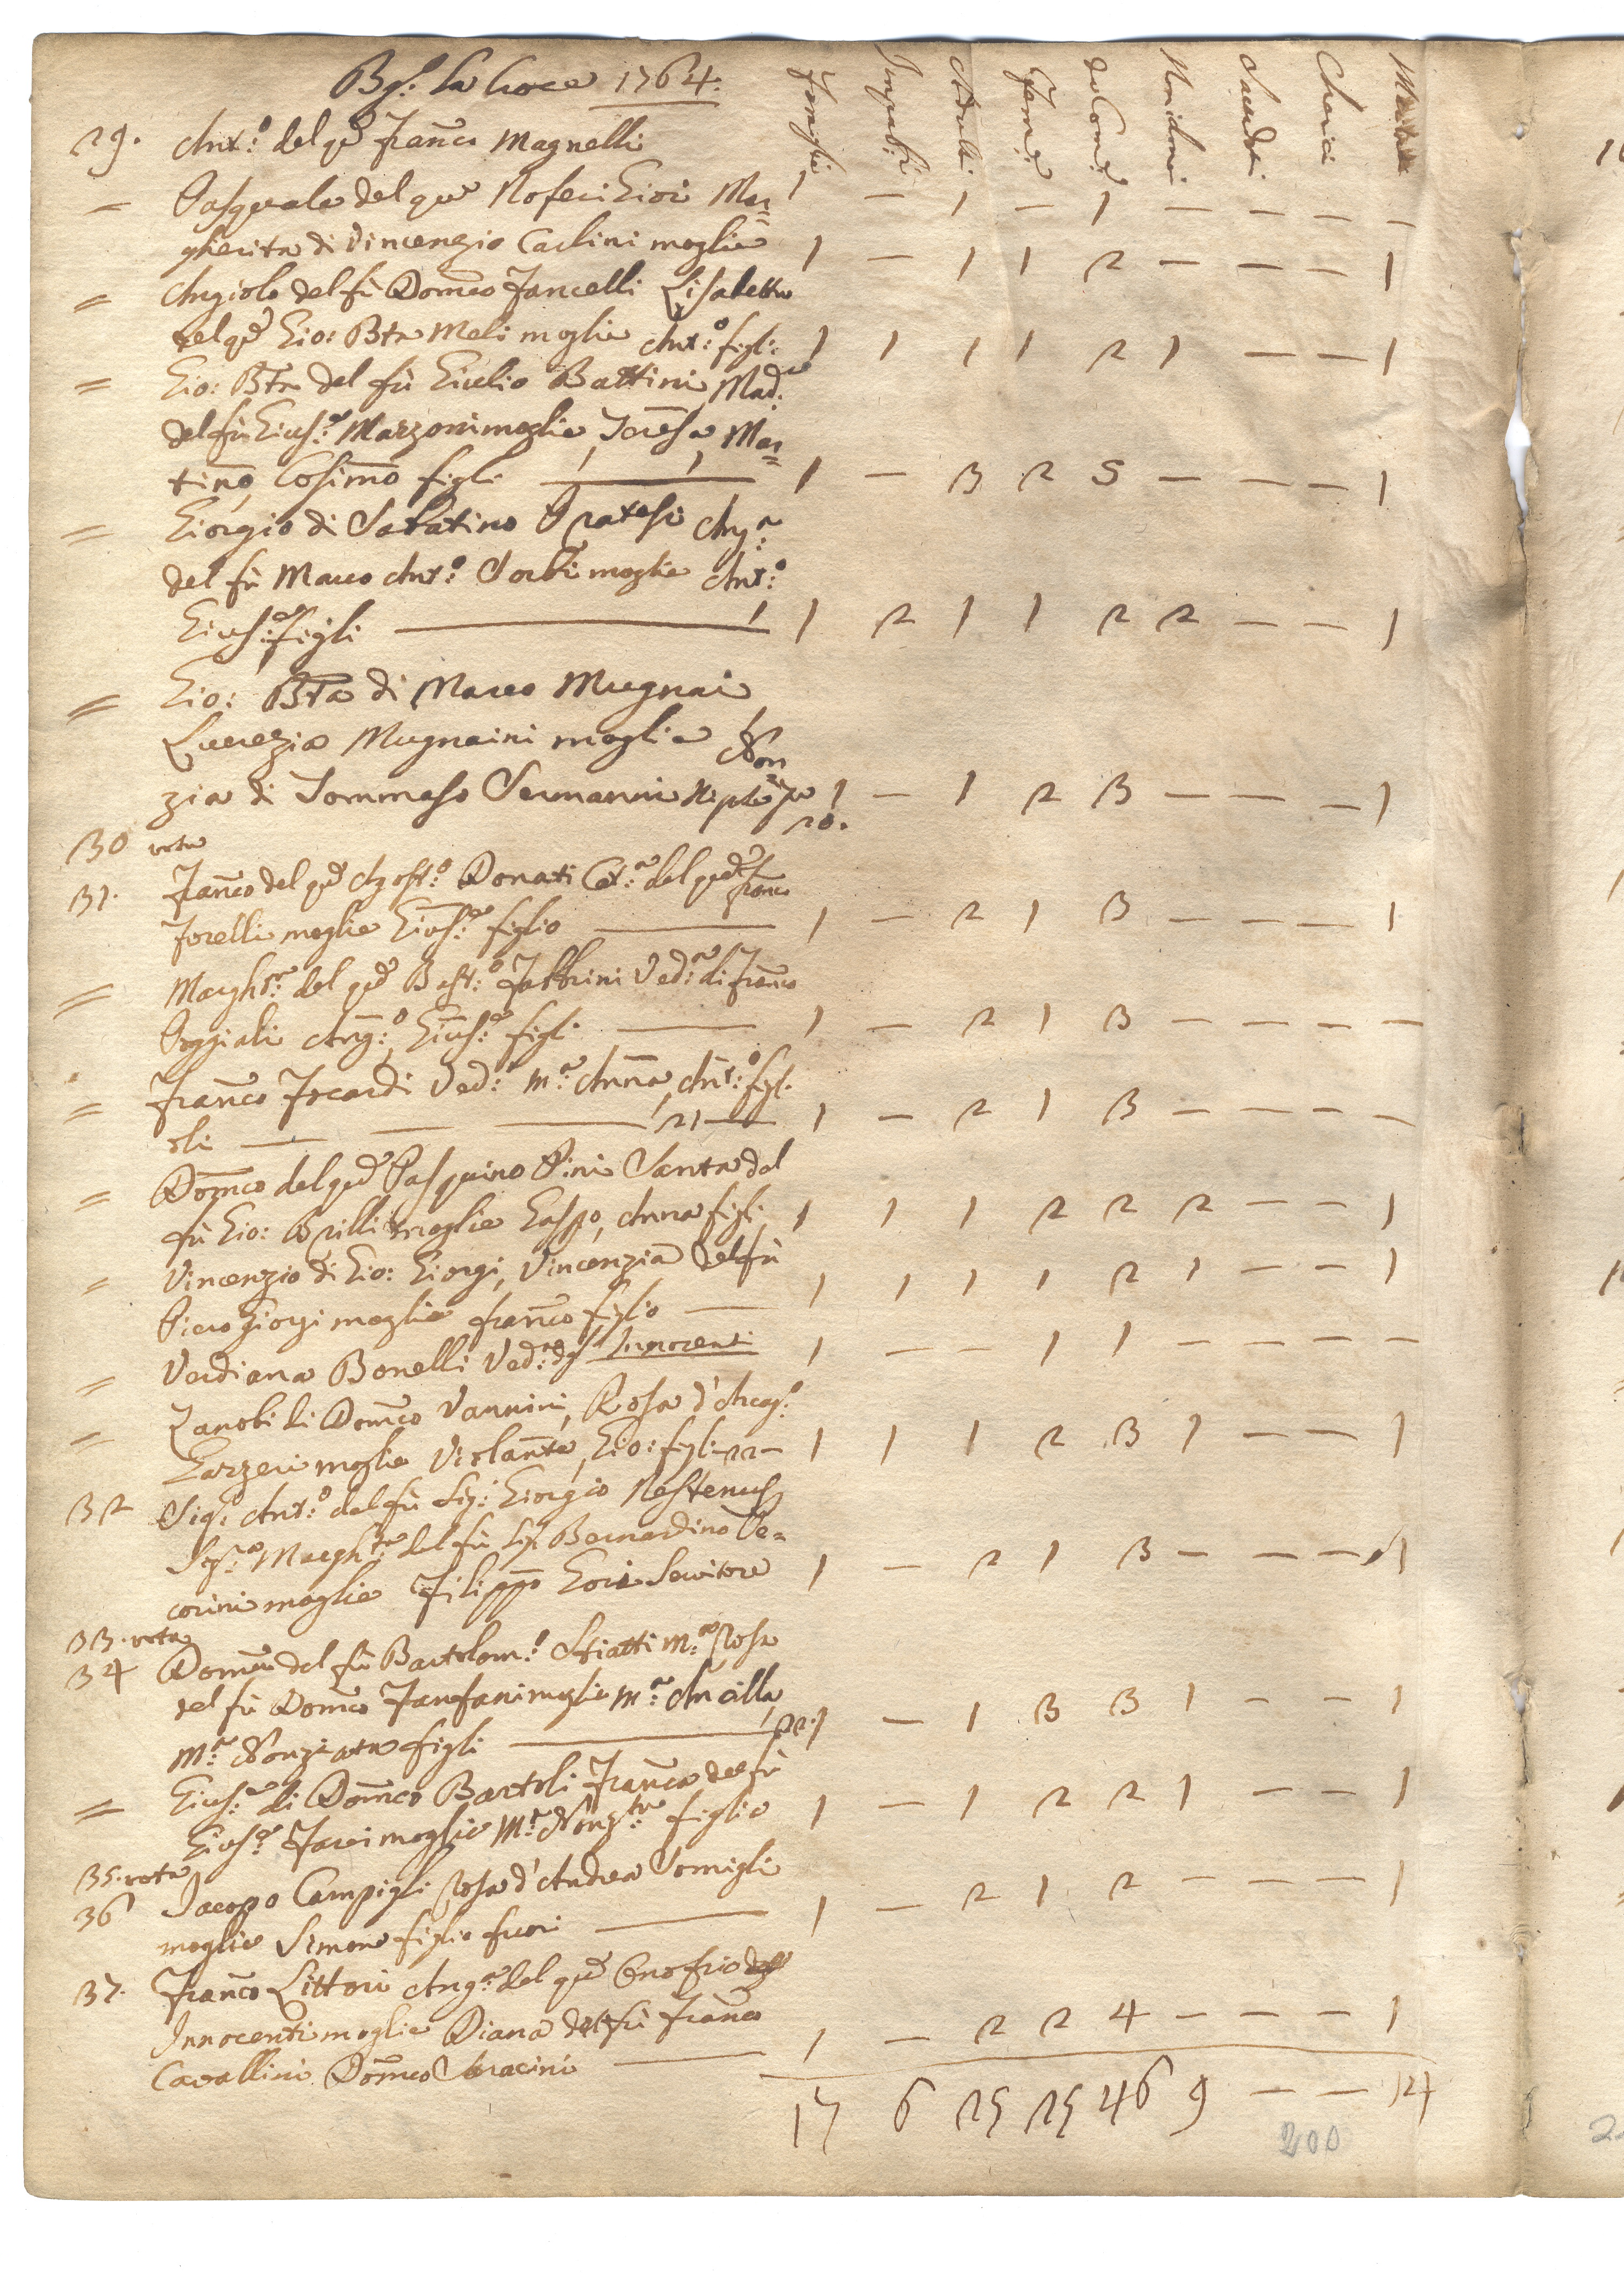 Bg.º La Croce 1764.
Famiglie Impub.ri Adulti Fem.e da Com.e Non idonei Sacerdoti Cherici
29. Ant.º del q.m Fran.co Magnelli 1 — 1 — 1 — — — —
= Pasquale del q.m Noferi Giori Mar=
gherita di Vincenzio Carlini moglie 1 — 1 1 2 — — — 1
= Angiolo del fù Dom.co Fancelli Lisabetta
del q.m Gio: Bta Meli moglie Ant.º figl: 1 1 1 1 2 1 — — 1
= Gio: Bta del fù Giulio Battini Mad.
del fù Gius.e Marzoni moglie, Teresa, Mar=
tino, Cosimo figli — 1 — 3 2 5 — — — 1
= Giorgio di Sabatino Pratesi Ang.a
del fù Marco Ant.º Sorbi moglie Ant.º
Gius.e figli — 1 2 1 1 2 2 — — 1
= Gio: Bta di Marco Mugnai
Lucrezia Mugnaini moglie Non
zia di Tommaso Sermanni Nipote 1 — 1 2 3 — — — 1
20.
30 vota
31. Fran.co del q.m Agost.º Donati Cat.a del q.m Fran.co
Forelli moglie Gius.e figlio — 1 — 2 1 3 — — — 1
= Margh.ta del q.m Bast.º Fabbrini Ved.a di Fran.co
Poggiali Ang.º, Gius.e figli — 1 — 2 1 3 — — — —
= Fran.co Focardi Ved.º M.a Anna, Ant.º figl.
oli — — — 21 — 1 — 2 1 3 — — — —
= Dom.co del q.m Pasquino Pini Santa del
fù Gio: Brilli moglie Gaspo, Anna figli 1 1 1 2 2 2 — — 1
= Vincenzio di Gio: Giorgi, Vincenzia del fù
Piero Giorgi moglie Fran.co figlio — 1 1 1 1 2 1 — — 1
= Verdiana Bonelli Ved.a dgl' Innocenti 1 — — 1 1 — — — —
= Zanobi di Dom.co Vannini, Rosa d' Arcag.º
Garzeri moglie Violante, Gio: figli 22 — 1 1 1 2 3 1 — — 1
32 Sig.r Ant.º del fù Sig: Giorgio Nestenus
Sig.ra Margh.ta del fù Sig.r Bernardino Pe=
corini moglie Filippo Gori Servitore 1 — 2 1 3 — — — 1
33. vota
34 Dom.co del fù Bartolom.º Stiatti M.a Rosa
del fù Dom.co Fanfani moglie M.a Ancilla,
M.a Nonziata figli — 22. 1 — 1 3 3 1 — — 1
= Gius.e di Dom.co Bartoli Fran.ca del fù
Gius.e Farei moglie M.a Nonz.ta figlia 1 — 1 2 2 1 — — 1
35. vota
36 Jacopo Campigli Rosa d' Andrea Somigli
moglie Simone figlio fuori — 1 — 2 1 2 — — — 1
37. Fran.co Littori Ang.a del q.m Onofrio degl
Innocenti moglie Diana del fù Fran.co
Cavallini Dom.co Saracini — 1 — 2 2 4 — — — 1
17 6 25 25 46 9 — — 14
200